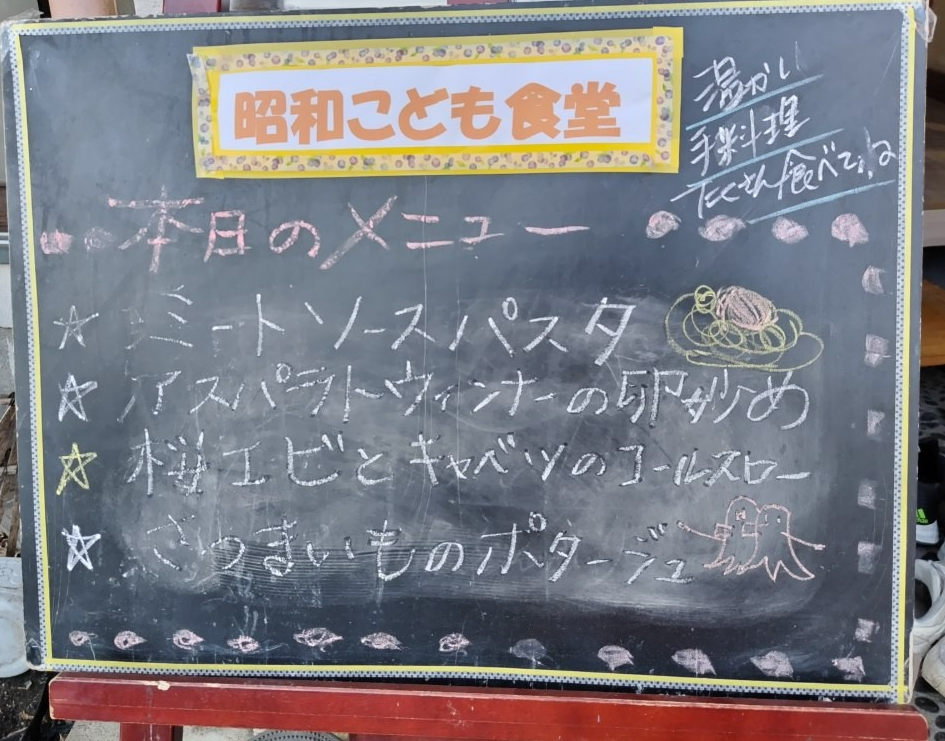 昭和こども食堂
温かい
手料理
たくさん食べてね
本日のメニュー
☆ ミートソースパスタ
☆ アスパラトウィンナーの卵炒め
☆ 桜エビとキャベツのコールスロー
☆ さつまいものポタージュ